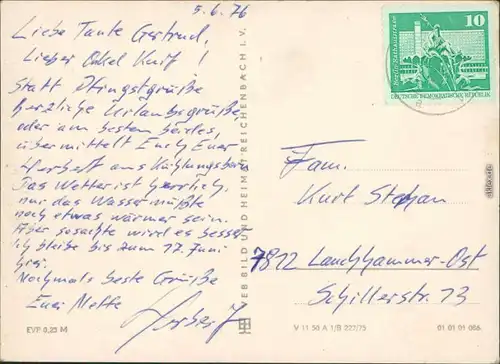 5.6.76
Liebe Tante Gertrud,
Lieber Onkel Kurt!
Statt Pfingstgrüße
herzliche Urlaubsgrüße,
oder am besten beides,
übermittelt Euch Euer
Herbert aus Kühlungsborn
Das Wetter ist herrlich,
nur das Wasser müßte
noch etwas wärmer sein.
Aber sosachte wird es besser.
Ich bleibe bis zum 17. Juni
hier.
Nochmals beste Grüße
Euer Neffe
Herbert
EVP 0,25 M
VEB BILD UND HEIMAT REICHENBACH I. V.
10
Berlin, Rathausstrasse
DEUTSCHE DEMOKRATISCHE REPUBLIK
Fam.
Kurt
7812 Lauchhammer-Ost
Schillerstr. 13
V 11 50 A 1/B 227/75
01 01 01 066